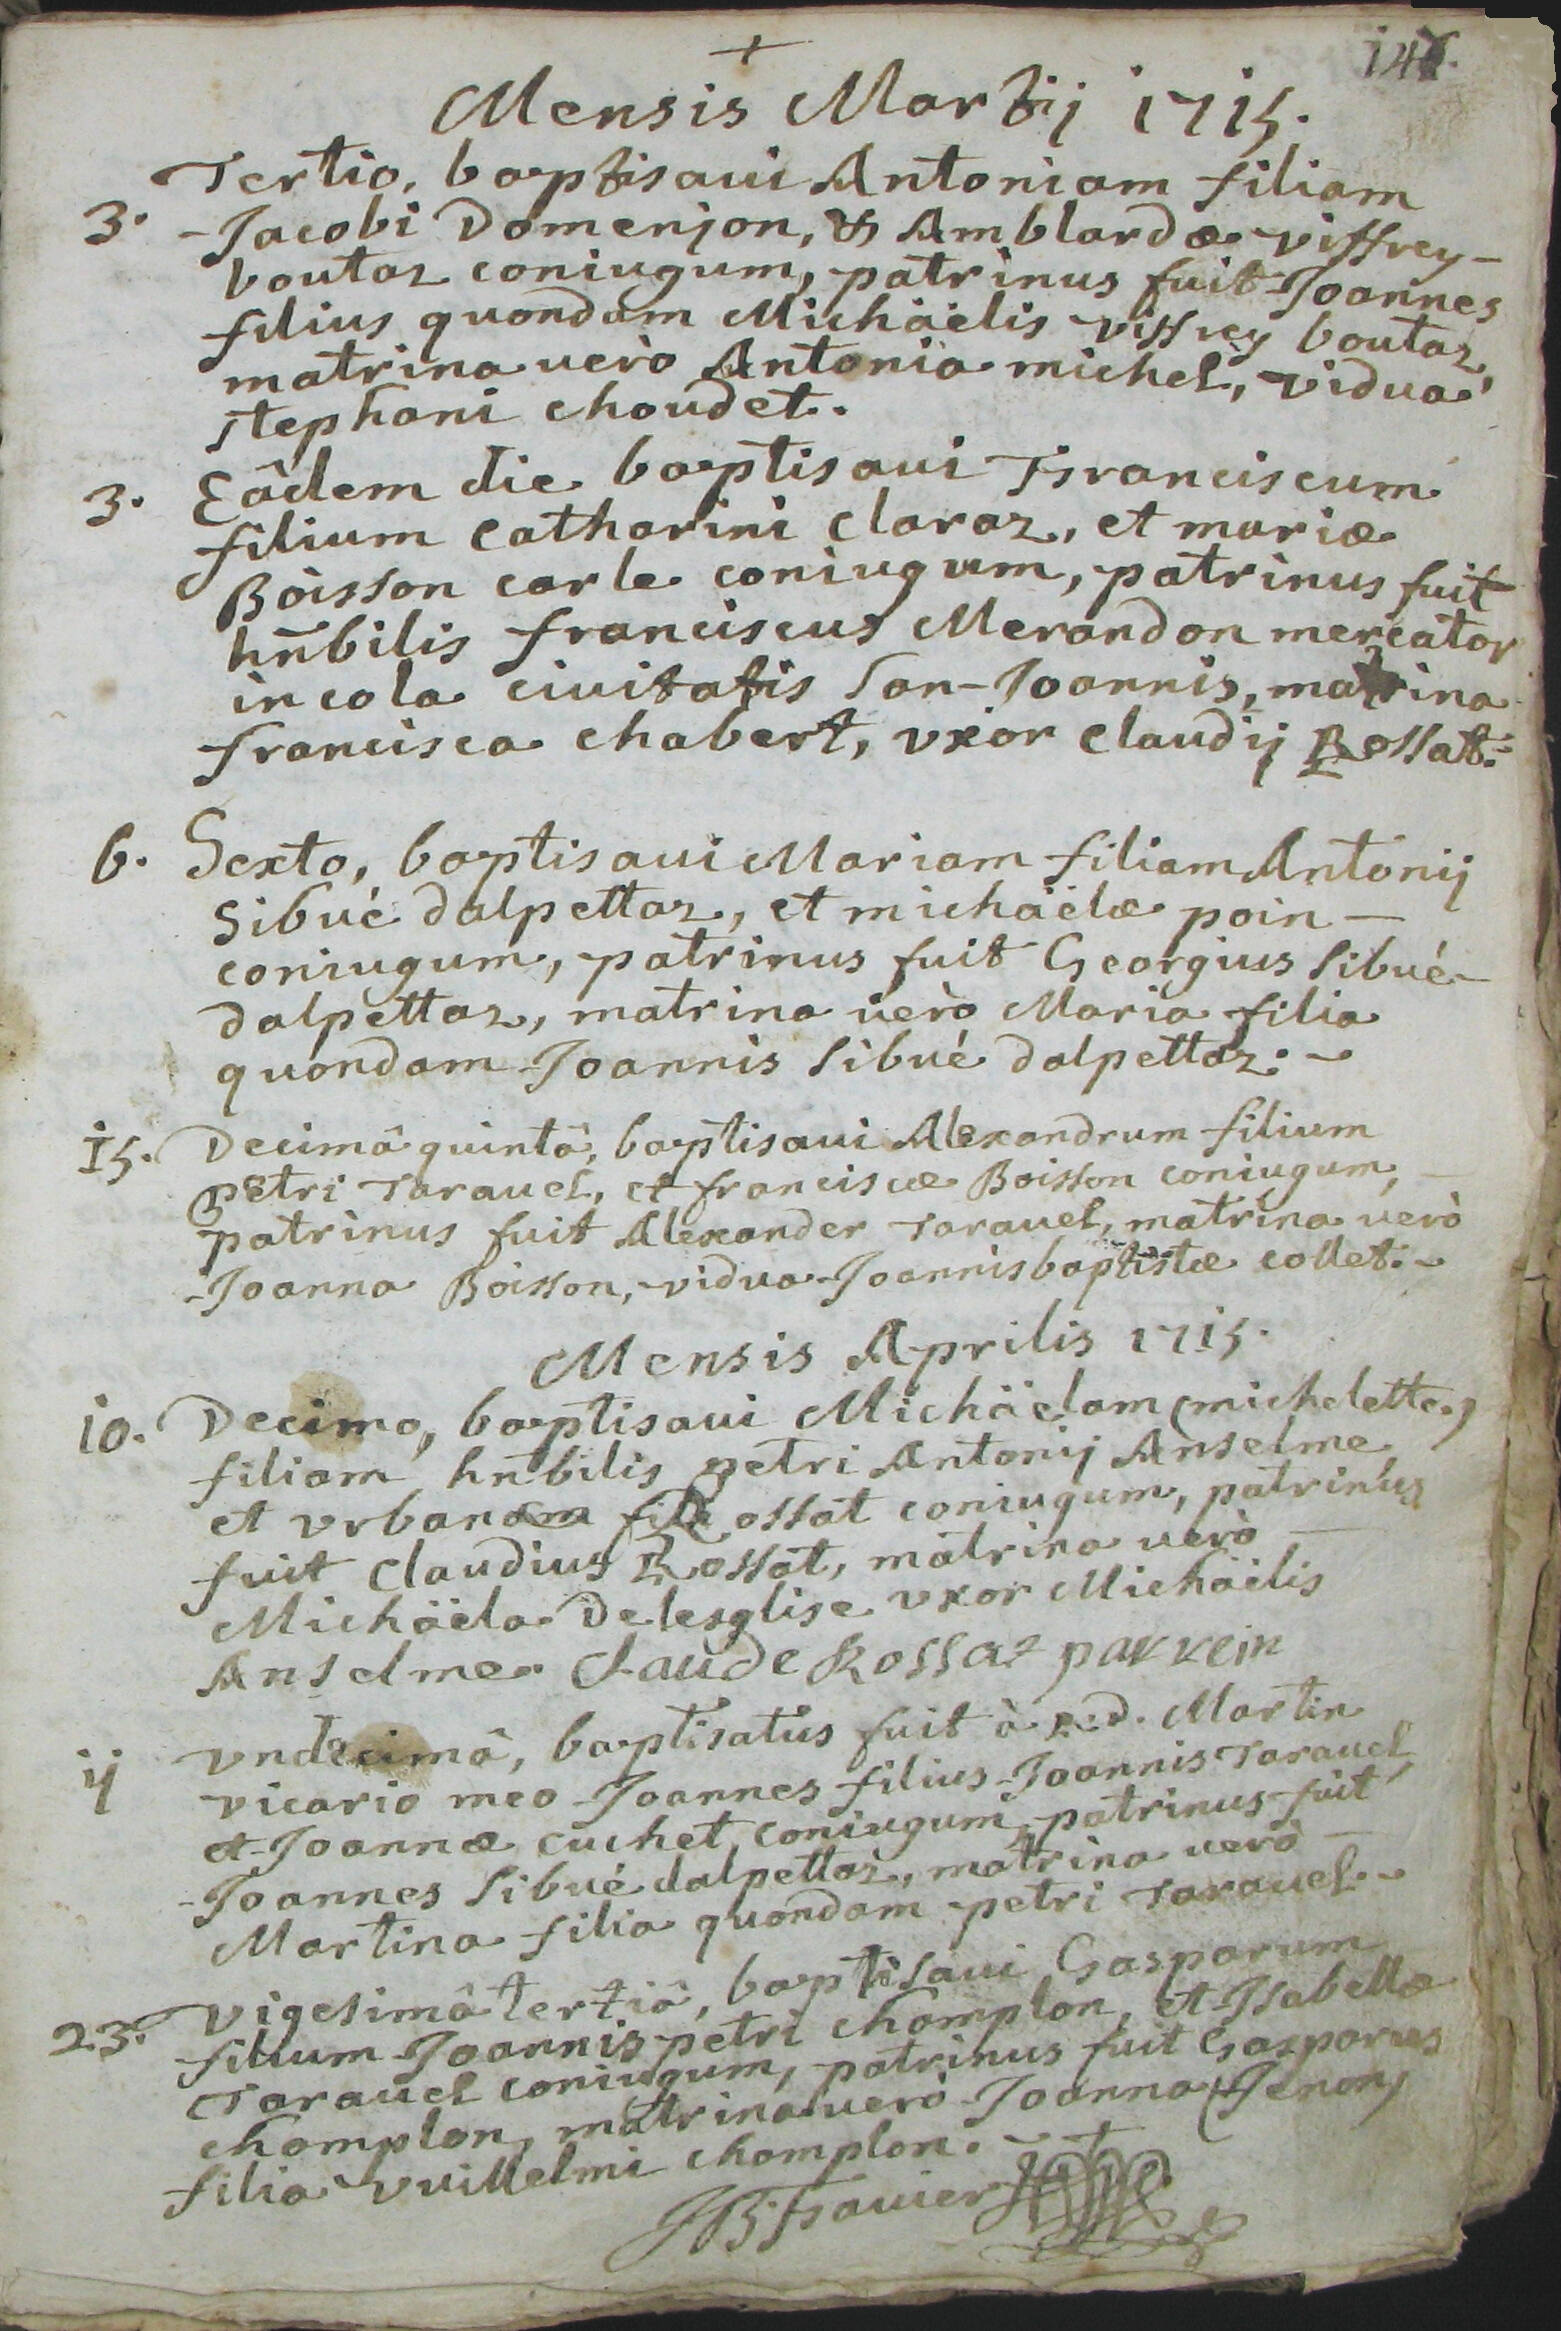 +
Mensis Martij 1715.
Tertio, baptisaui Antoniam filiam
3. Jacobi Domenjon, & Amblardæ viffrey-
boutaz coniugum, patrinus fuit Joannes
filius quondam Michäelis viffrey boutaz,
matrina uerò Antonia michel, vidua
stephani choudet.
3. Eâdem die baptisaui Franciscum
filium Catharini Claraz, et mariæ
Boisson carle coniugum, patrinus fuit
hñbilis franciscus Merandon mercator
incola ciuitatis San-Joannis, matrina
francisca chabert, vxor Claudij Rossat.
6. Sexto, baptisaui Mariam filiam Antonij
Sibué dalpettaz, et michäelæ poin-
coniugum, patrinus fuit Georgius Sibué-
dalpettaz, matrina uerò Maria filia
quondam Joannis Sibué dalpettaz.
15. Decimâ quintâ, baptisaui Alexandrum filium
petri Tarauel, et franciscæ Boisson coniugum,
patrinus fuit Alexander Tarauel, matrina uerò
Joanna Boisson, vidua Joannisbaptistæ collet.
Mensis Aprilis 1715.
10. Decimo, baptisaui Michäelam (michelette)
filiam hñbilis petri Antonij Anselme,
et vrbanæ Rossat coniugum, patrinus
fuit Claudius Rossat, matrina uerò
Michäela Delesglise vxor Michäelis
Anselme. Claude Rossat parrein
ij Vndecimâ, baptisatus fuit à R.d. Martin
vicario meo Joannes filius Joannis Tarauel,
et Joannæ cuchet coniugum, patrinus fuit
Joannes Sibué dalpettaz, matrina uerò
Martina filia quondam petri Tarauel.
23. Vigesimâ tertiâ, baptisaui Gasparum
filium Joannis petri champlon, et Isabellæ
Tarauel coniugum, patrinus fuit Gasparus
champlon, matrina uerò Joanna (Jenon)
filia vuillelmi champlon.
JB: Fauier